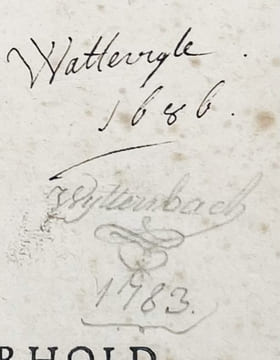 Wattevyle
1686.
Wyttenbach
1783.
RHOLD